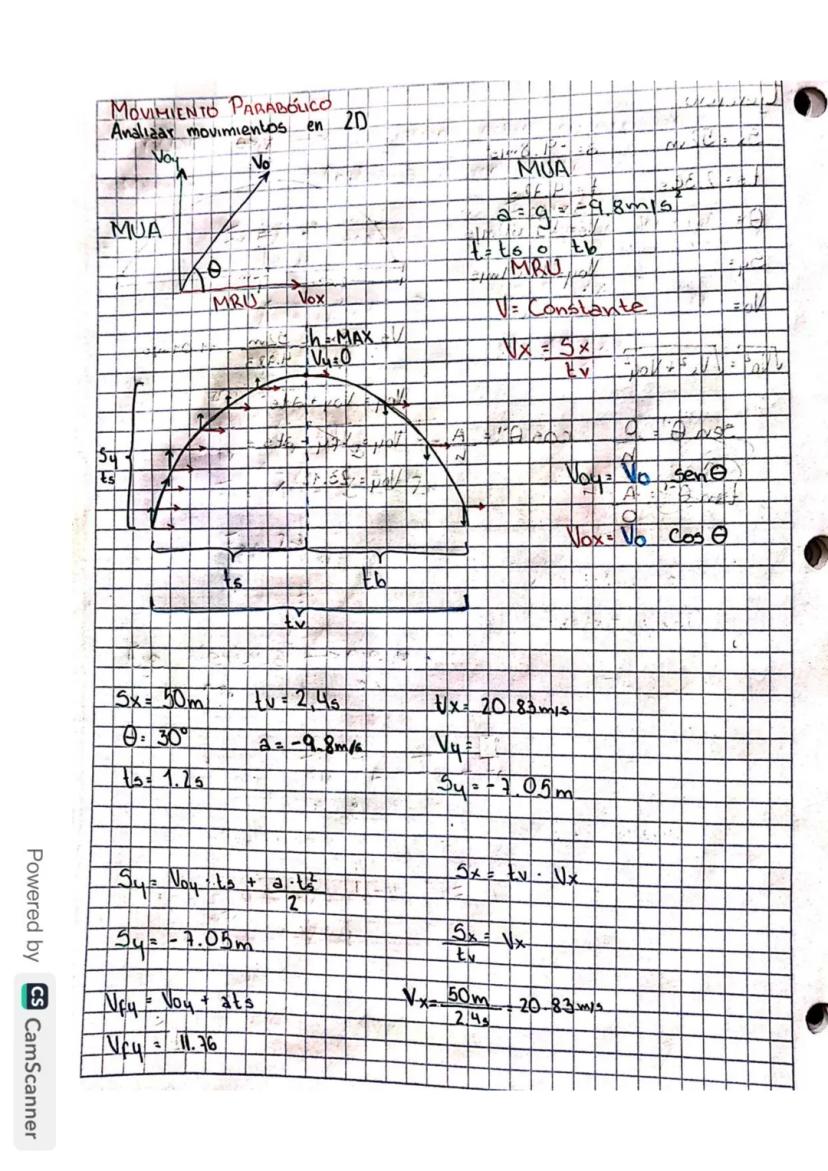 MOVIMIENTO PARABÓLICO
Analizar movimientos en 2D
Voy
Vo
MUA
θ
MRU
Vox
MUA
a = g = -9.8m/s²
t = ts o tb
MRU
V = Constante
Vx = Sx
tv
h = MAX
Vy = 0
Sy
ts
Voy = Vo senθ
Vox = Vo Cos θ
ts
tb
tv
Sx = 50m tv = 2,4s Vx = 20.83m/s
θ = 30° a = -9.8m/s Vy =
ts = 1.2s Sy = -7.05m
Sy = Voy · ts + a · ts²
2
Sx = tv · Vx
Sy = -7.05m
Sx = Vx
tv
Vfy = Voy + ats
Vx = 50m = 20.83m/s
2.4s
Vfy = 11.76
Powered by CS CamScanner